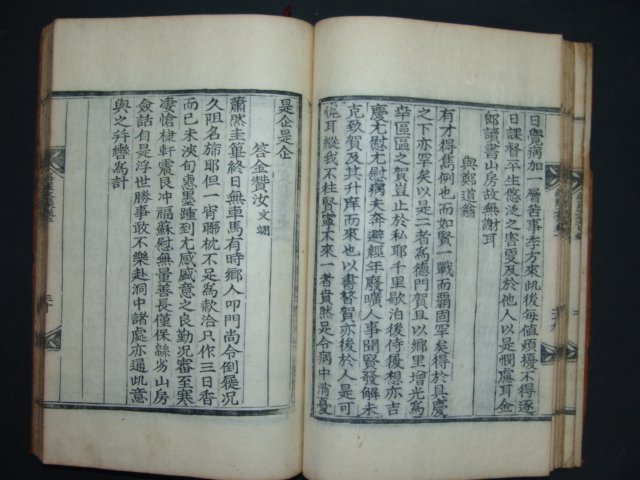 日覺病加一層苦事李方來此後每値煩擾不得逐
日課督平生悠泛之害憂及於他人以是憫慮耳金
郎讀書山房故無謝耳
與鄭道翁
有才得雋倒也而如賢一戰而覇固罕矣得於具慶
之下亦罕矣以是二者爲德門賀且以鄉里增光爲
幸區區之賀豈止於私耶千里歇泊後侍履想亦吉
慶尤慰尤慰病夫奔避經年廢曠人事聞賢發解未
克致賀及其升庠而來也以書替賀亦後於人是可
愧耳縱我不往賢寧不來一者賁然是令病中消憂
是企是企
答金贊汝 文
蕭然圭篳終日無車馬有時鄉人叩門尚令倒屣况
久阻名旆耶但一宵聯枕不足爲款洽只作三日香
而已未浹旬惠墨踵到尤感盛意之良勤况審至寒
凄愴棣軒震艮冲福蘇慰無量善長僅保緜劣山房
僉話自是浮世勝事敢不樂赴洞中諸處亦通此意
與之幷轡爲計
三十